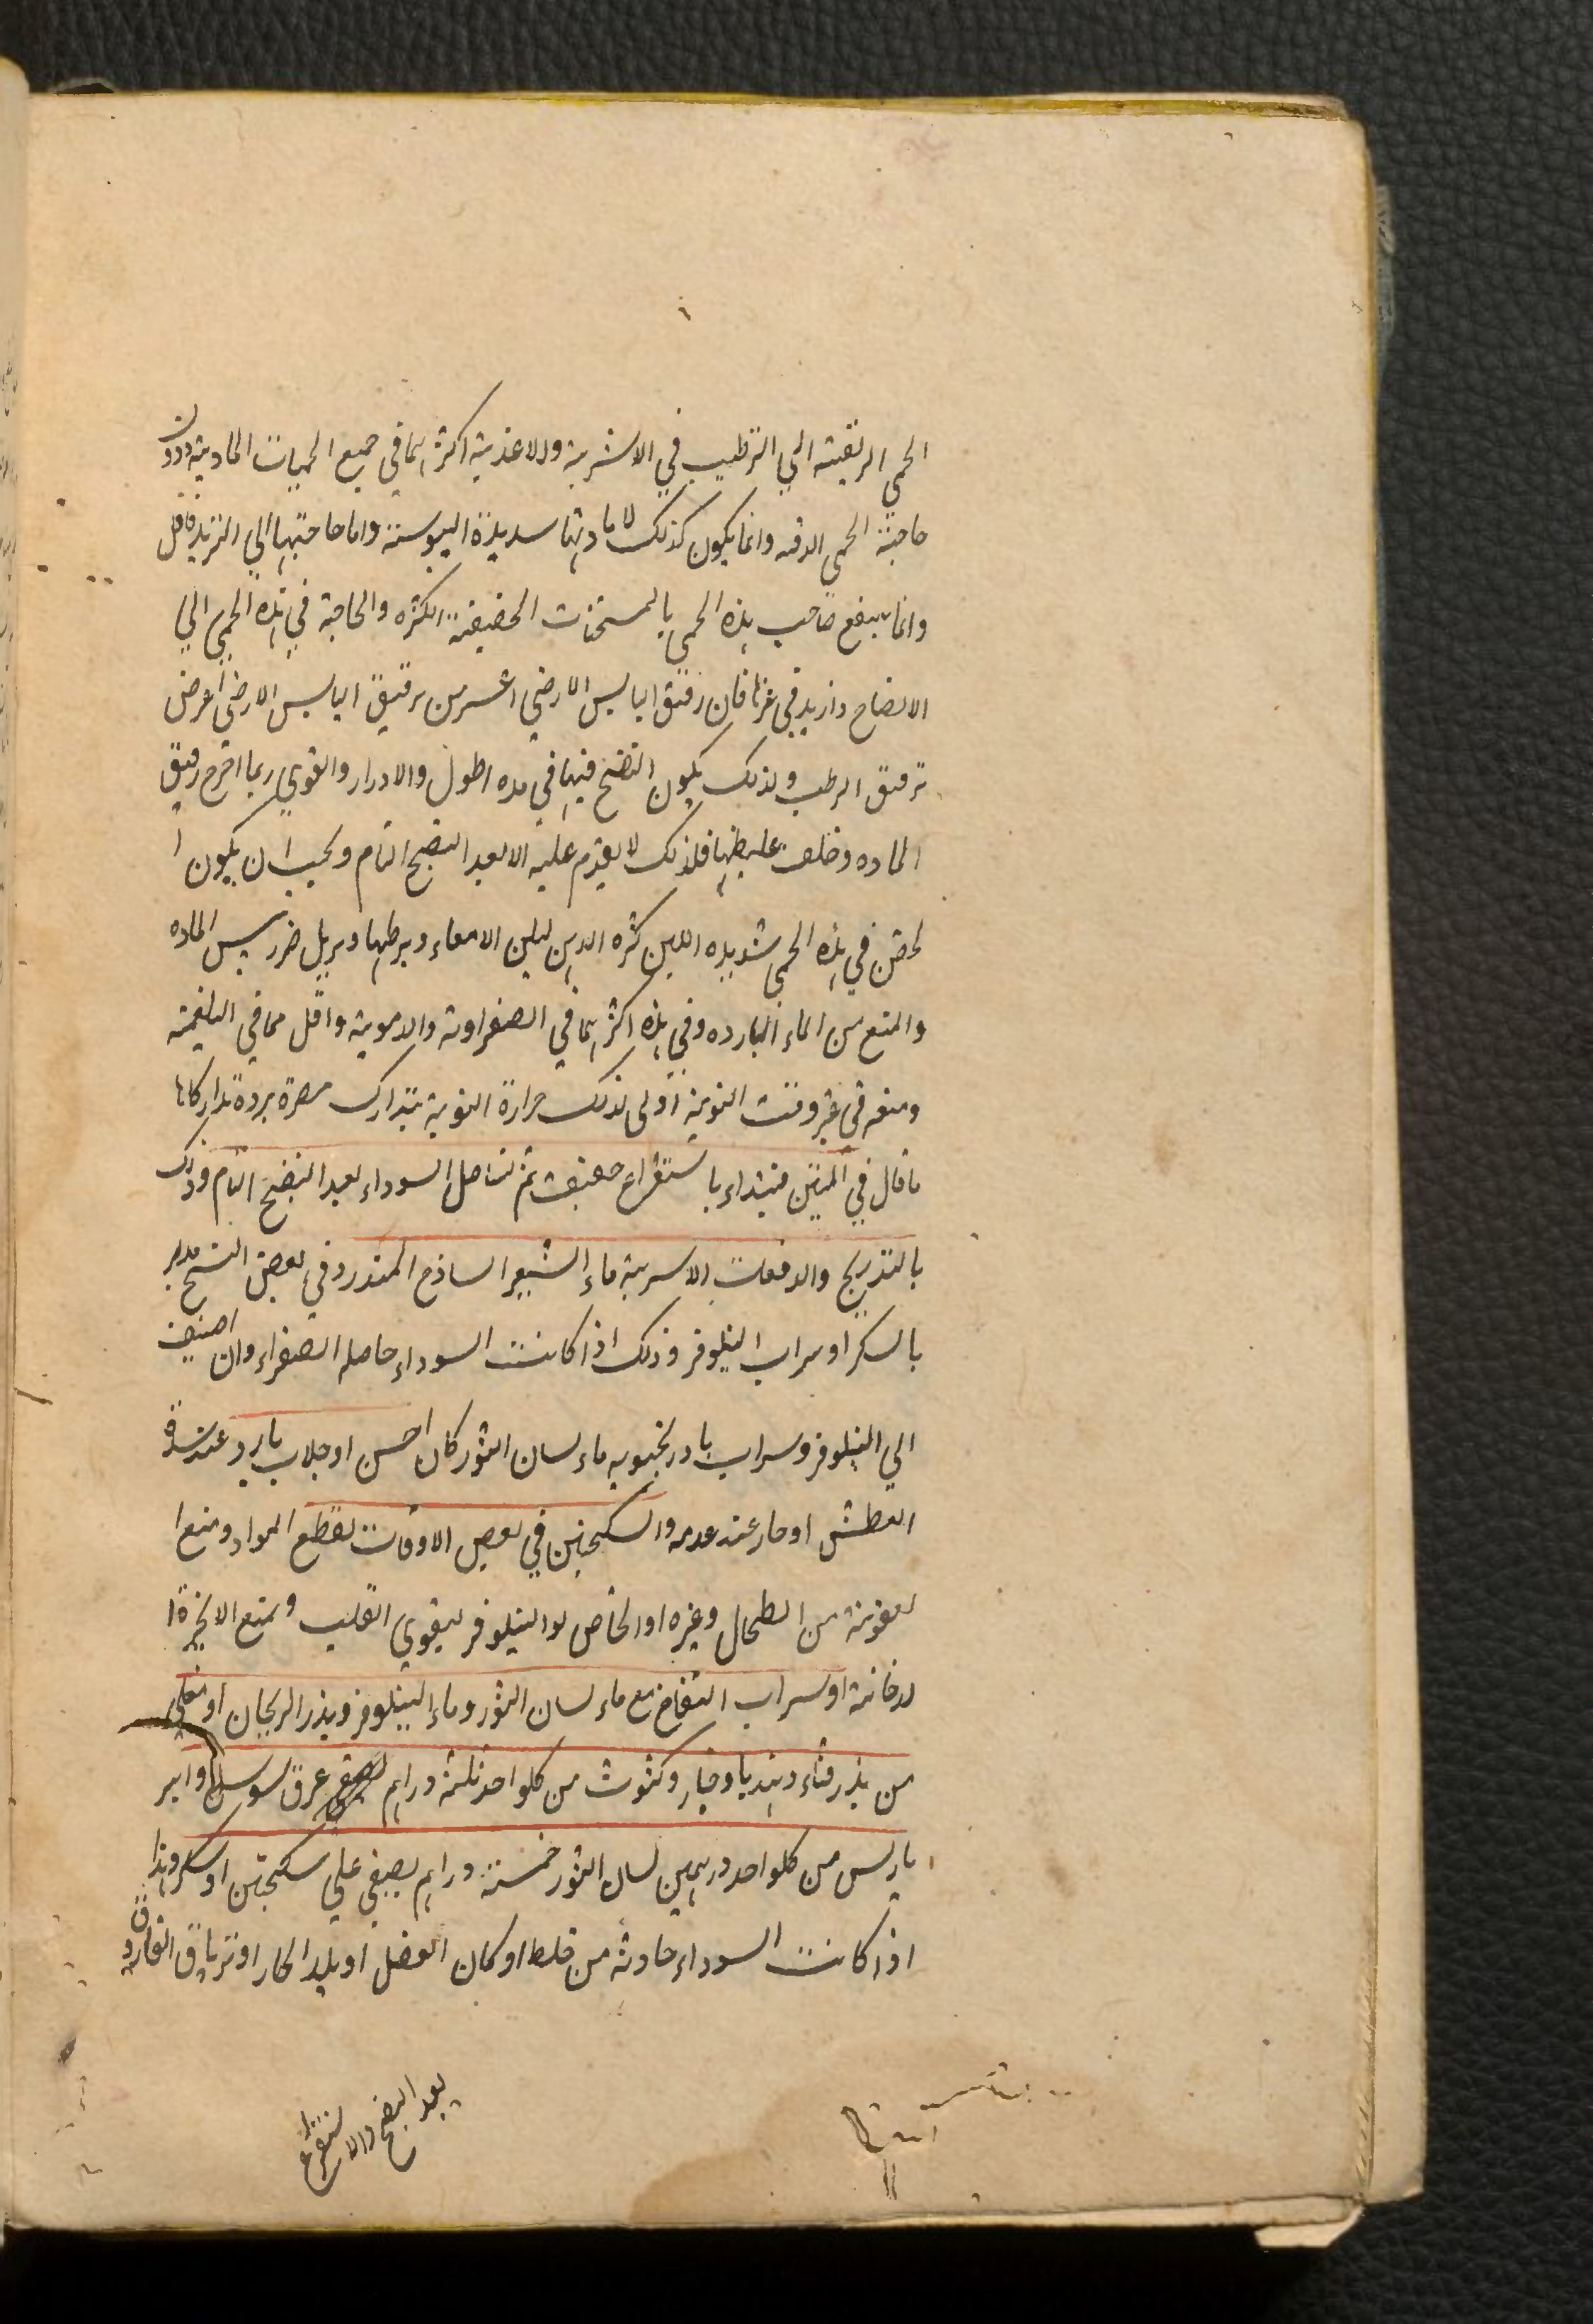 الحمي الربعية الي الترطيب في الاشربة والاغذية اكثر مما في جميع الحميات المادية ودون
حاجته الحمي الدقه وانما يكون كذلك لا ما دتها شديدة اليبوسته واما حاجتها الي التبريد فاقل
وانما ينفع صاحب هذه الحمي بالمسخنات الخفيفة الكثره والحاجة في هذه الحمي الي
الانضاح وازيد في غيرها فان رقيق اليابس الارضي اعسر من ترقيق اليابس الارضي اعرض
ترقيق الرطب ولذلك يكون النضج فيها في مده اطول والادرار والقوي ربما اخرج رقيق
الماده وخلف غليظها فلذلك لا يقدم عليه الا بعد النضج التام ويجب ان يكون ا
لحقن في هذه الحمي شديده اللين كثره الدهن ليلين الامعاء ويرطبها ويزيل ضرر يبس الماده
والمنع من الماء البارده وفي هذه اكثر مما في الصفراوية والدموية واقل مما في البلغمية
ومنعه في غير وقت النوبة اولى لذلك حرارة النوبة يتدارك مضرة برده تداركا ما
قال في المتن فيبتداء باستفراغ خفيف ثم نستاصل السوداء بعد النضج التام وذلك
بالتدريج والدفعات الاشربة ماء الشعير الساذج المتدرد في بعض النسخ مدبر
بالسكر او شراب النيلوفر وذلك اذا كانت السوداء حاصله الصفراء وان اضيف
الي النيلوفر وشراب بادرنجبويه ماء لسان الثور كان احسن او جلاب بارد عند شدة
العطش او حار عند عدمه والسكنجبين في بعض الاوقات لقطع المواد ومنع ا
لعفونة من الطحال وغيره او الحماض لو النيلوفر ليقوي القلب ويمنع الابخرة ا
لدخانية او شراب التفاح مع ماء لسان الثور وماء النيلوفر وبذر الريحان او مغلي
من بذر قثاء وهنديا وخيار وكثوث من كلواحد ثلثة دراهم عرق سوس وامير
باريس من كلواحد درهمين لسان الثور خمسة دراهم يصفي علي سكنجبين او سكر وهذا
اذا كانت السوداء حادثه من خلط او كان الفصل او بلد الحار او ترياق الفاروق
بعد النضج والاستفراغ